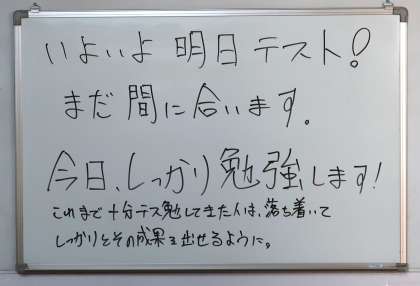 いよいよ 明日 テスト!
まだ 間に 合います。
今日、しっかり 勉強します!
これまで 十分テス勉してきた人は、落ち着いて
しっかりとその成果を出せるように。